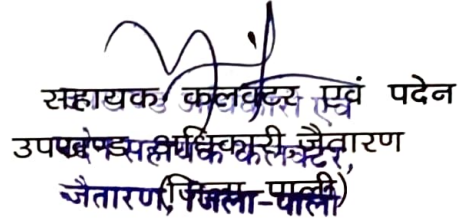 सहायक कलक्टर एवं पदेन
उपखण्ड अधिकारी, जैतारण
(जिला-पाली)
पदेन सहायक कलेक्टर,
जैतारण, जिला-पाली